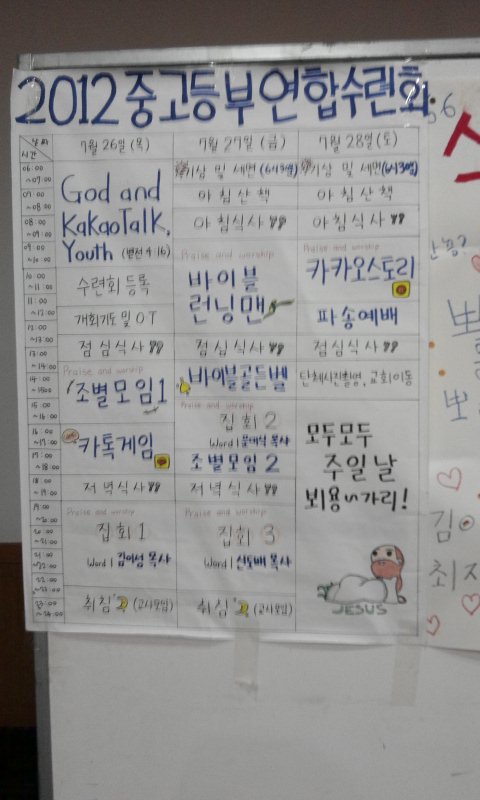 2012 중고등부연합수련회
날짜
시간
7월26일(목)
7월27일(금)
7월28일(토)
06:00
~07:00
07:00
~08:00
08:00
~09:00
09:00
~10:00
10:00
~11:00
11:00
~12:00
12:00
~13:00
13:00
~14:00
14:00
~15:00
15:00
~16:00
16:00
~17:00
17:00
~18:00
18:00
~19:00
19:00
~20:00
20:00
~21:00
21:00
~22:00
22:00
~23:00
23:00
~24:00
God and
KaKaoTalk,
Youth (벧전 4:16)
수련회 등록
개회기도 및 OT
점심식사
Praise and worship
조별모임1
카톡게임
저녁식사
Praise and worship
집회 1
Word | 김이성 목사
취침 (교사모임)
기상 및 세면(6시30분)
아침산책
아침식사
Praise and worship
바이블
런닝맨
점심식사
바이블골든벨
Praise and worship
집회 2
Word |
목사
조별모임 2
저녁식사
Praise and worship
집회 3
Word | 신동배 목사
취침 (교사모임)
기상 및 세면(6시30분)
아침산책
아침식사
Praise and worship
카카오스토리
파송예배
점심식사
단체사진촬영, 교회이동
모두모두
주일날
뵈용~가리!
JESUS
김
최지